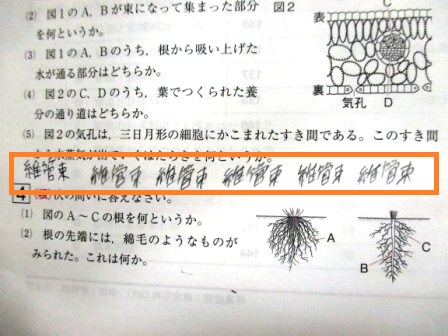 (2) 図1のA，Bが束になって集まった部分
を何というか。
図2
C
(3) 図1のA，Bのうち，根から吸い上げた
水が通る部分はどちらか。
表
(4) 図2のC，Dのうち，葉でつくられた養
分の通り道はどちらか。
裏
気孔 D
(5) 図2の気孔は，三日月形の細胞にかこまれたすき間である。このすき間
維管束 維管束 維管束 維管束 維管束 維管束
4 次の問いに答えなさい。
(1) 図のA～Cの根を何というか。
(2) 根の先端には，綿毛のようなものが
みられた。これは何か。
A
B
C